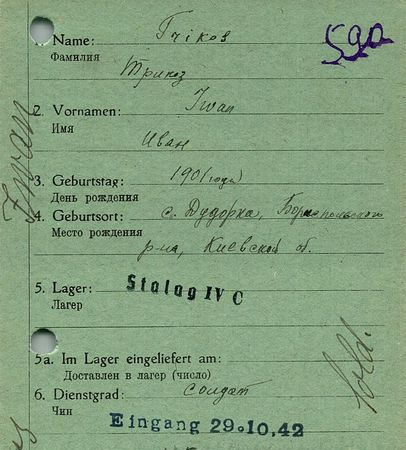 59a
1. Name: Trikos
Фамилия
Трикоз
2. Vornamen: Iwan
Имя
Иван
3. Geburtstag: 1901 (года)
День рождения
4. Geburtsort: с. Дударка, Бориспольского
Место рождения
р-на, Киевской об.
5. Lager: Stalag IV C
Лагерь
5a. Im Lager eingeliefert am:
Доставлен в лагерь (число)
6. Dienstgrad: солдат
Чин
Eingang 29.10.42
Iwan
Sold.